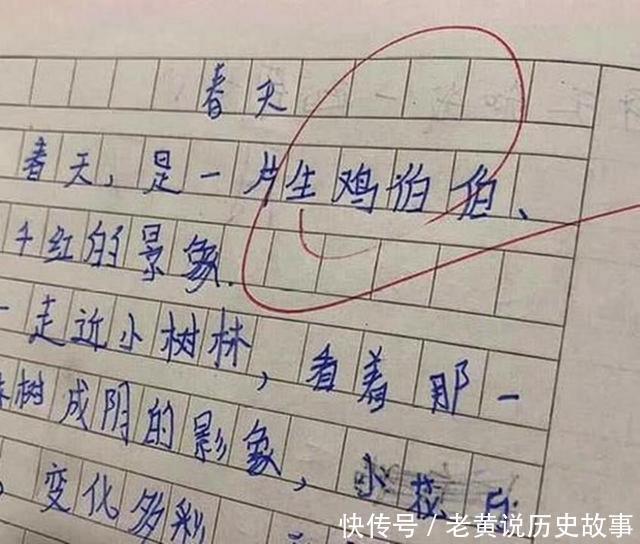 春天
春天，是一片生鸡泊伯、
千红的景象.
走近小树林，看着那一
树成阴的影象，小花
变化多彩
快传号 / 老黄说历史故事